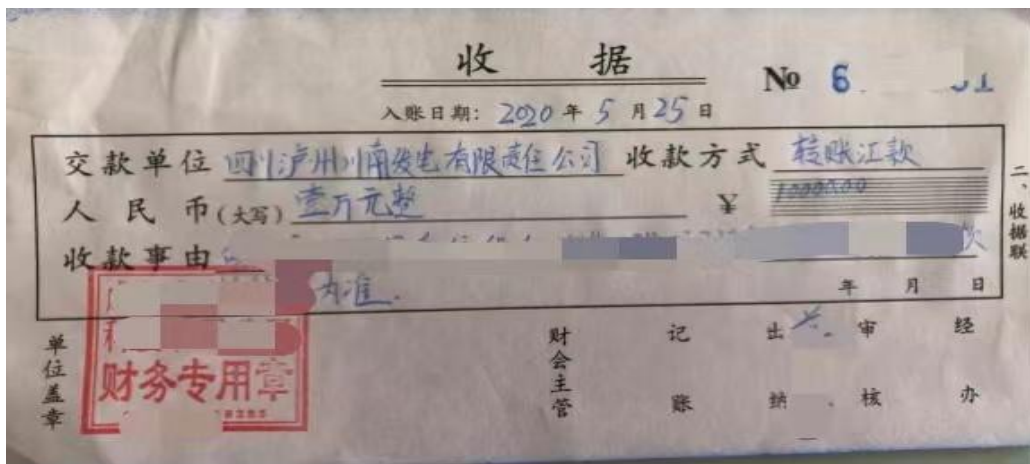 收 据
No 6
入账日期：2020 年 5 月 25 日
交款单位 四川泸州川南发电有限责任公司 收款方式 转账汇款
人民币（大写） 壹万元整 ￥ 1000000
收款事由 款
内准.
年 月 日
二、收据联
单位盖章
财务专用章
财会主管 记账 出纳 审核 经办